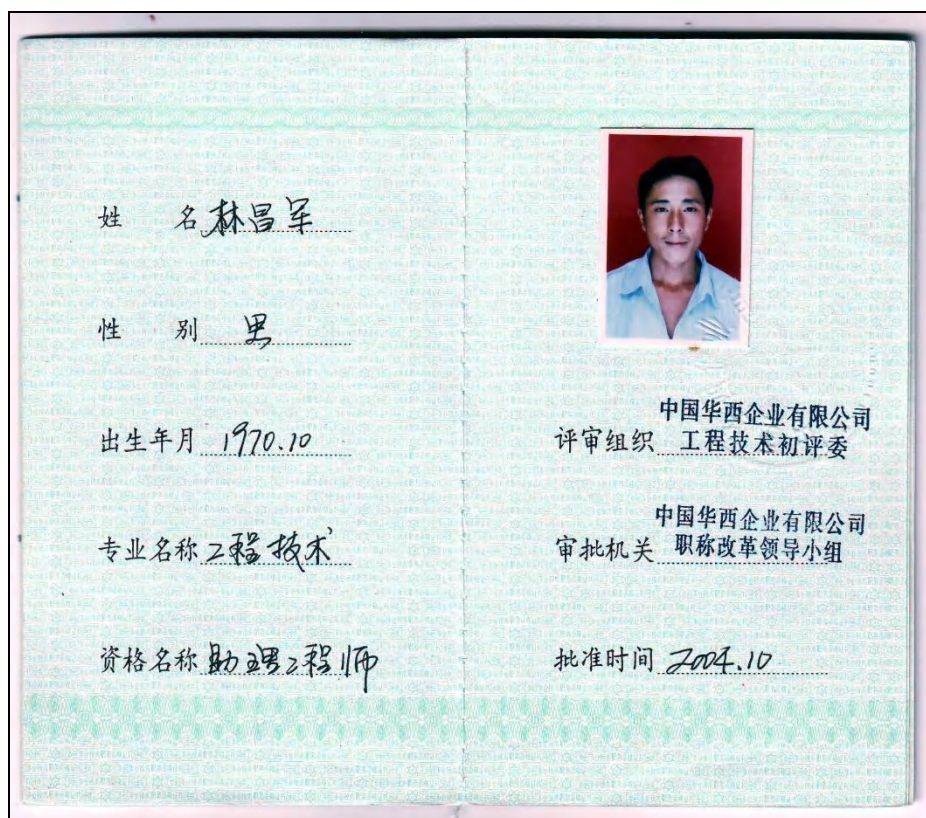 姓 名 林昌军
性 别 男
出生年月 1970.10
专业名称 工程技术
资格名称 助理工程师
评审组织 中国华西企业有限公司
工程技术初评委
审批机关 中国华西企业有限公司
职称改革领导小组
批准时间 2004.10